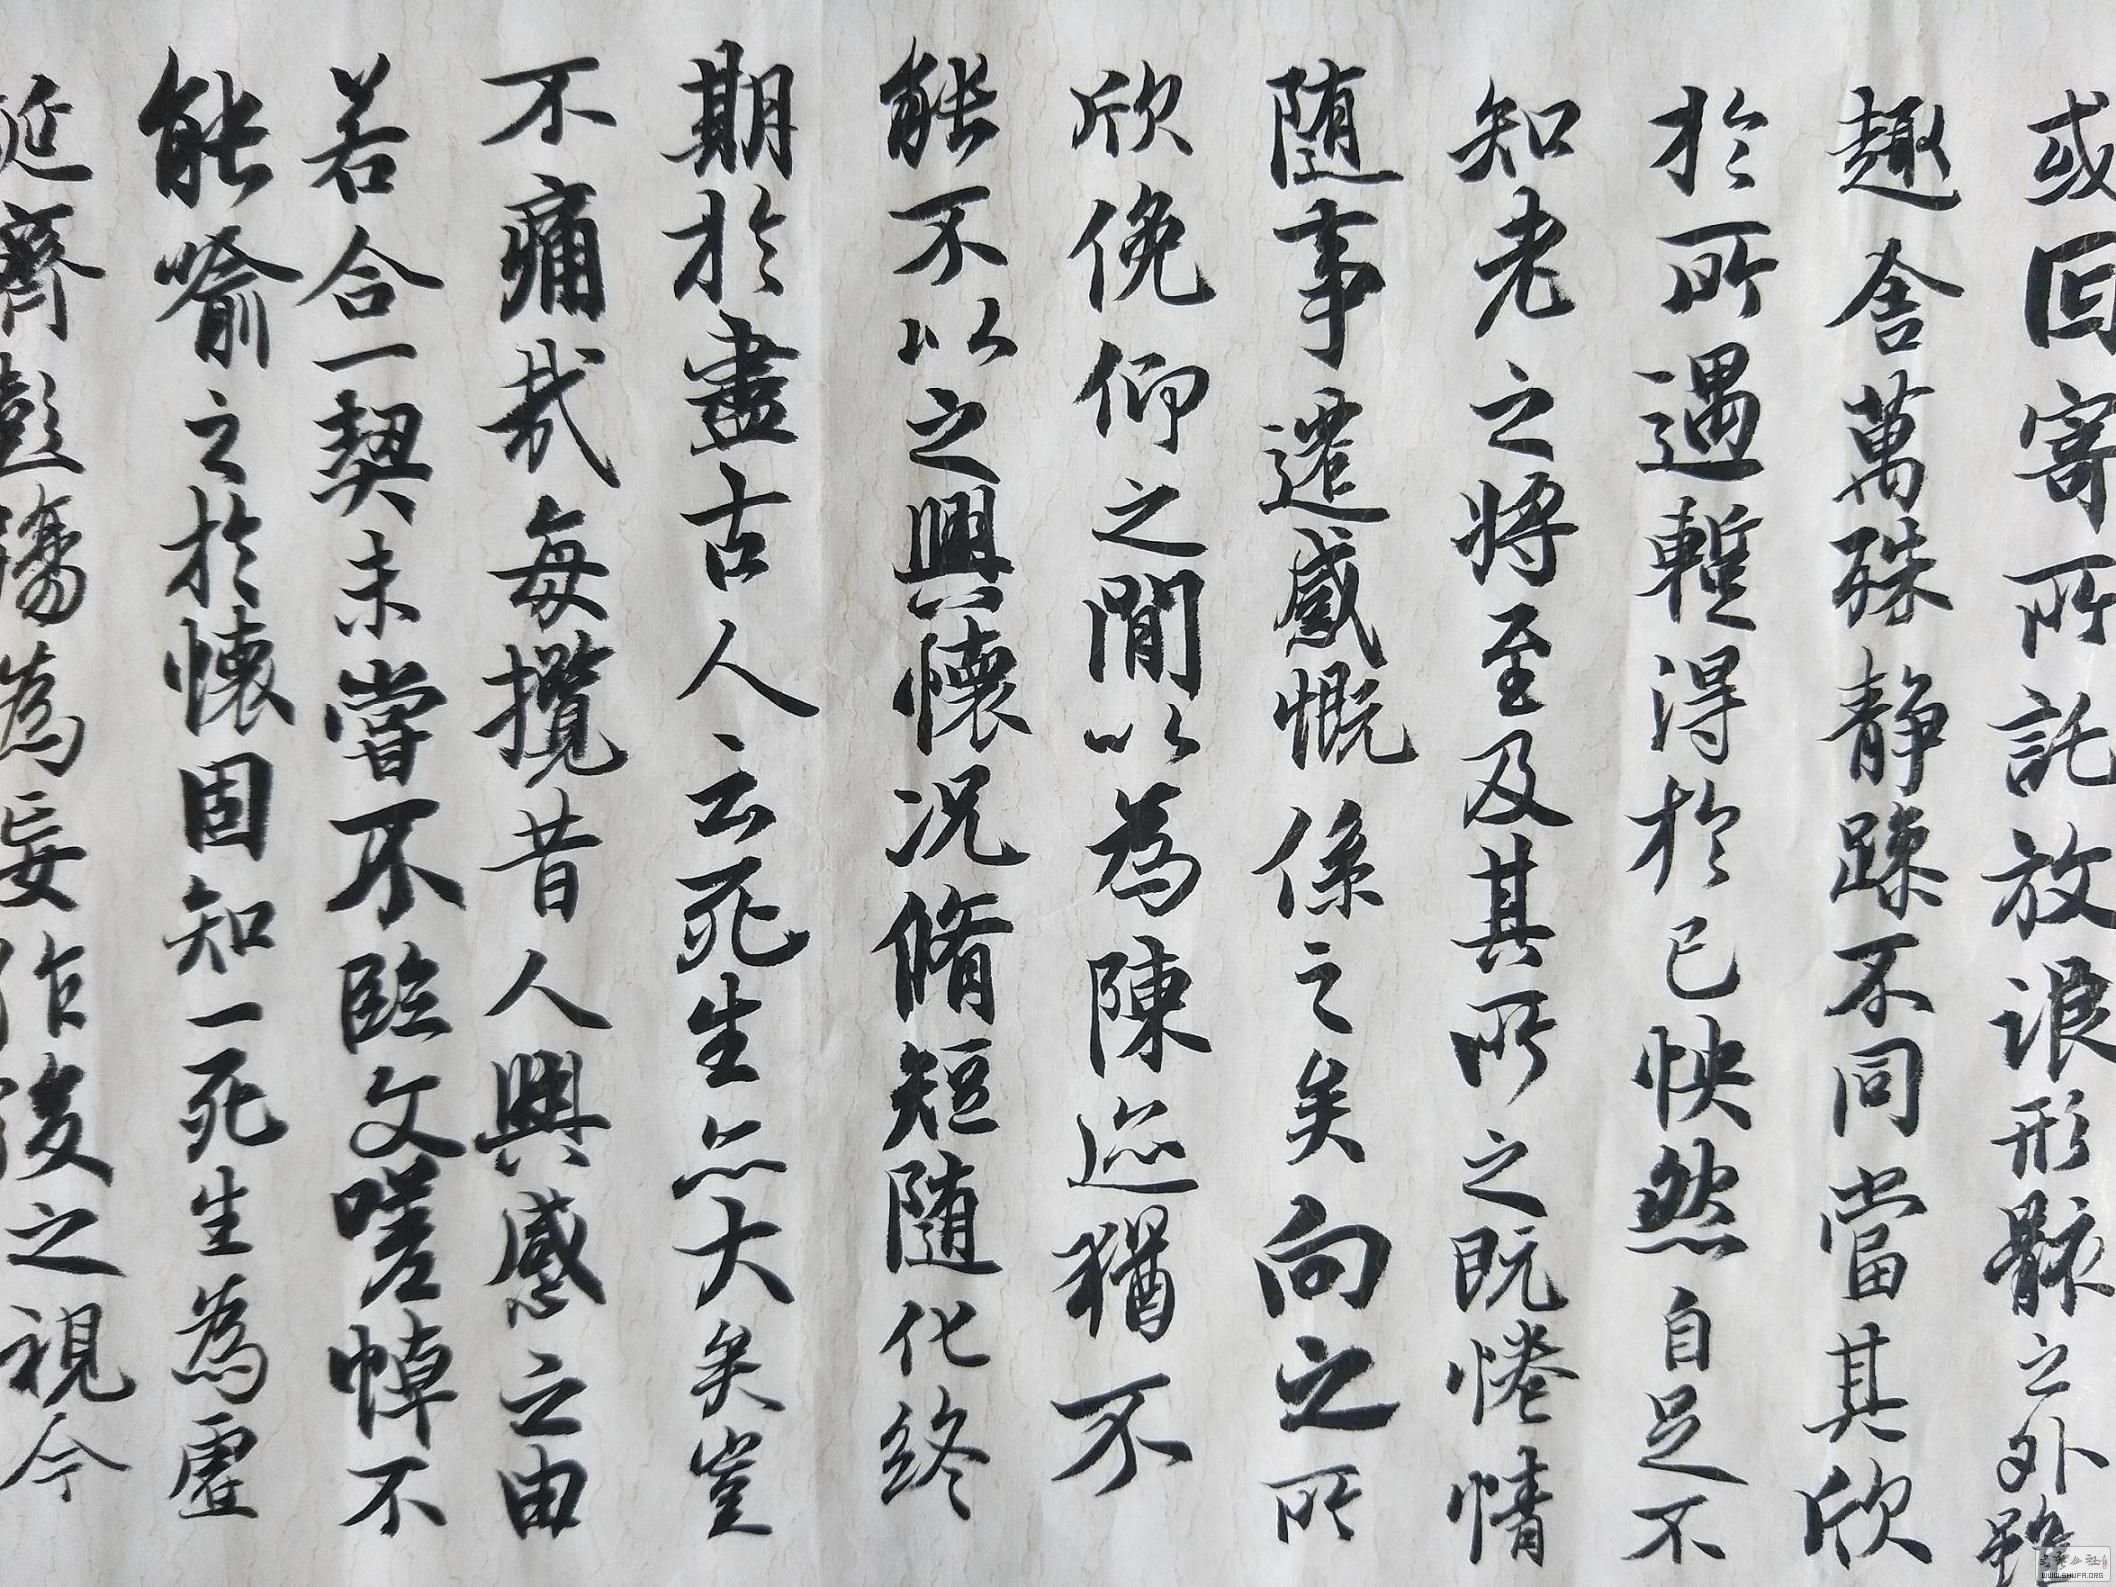 或因寄所託放浪形骸之外雖
趣舍萬殊静躁不同當其欣
於所遇暫得於己怏然自足不
知老之將至及其所之既惓情
随事遷感慨係之矣向之所
欣俛仰之間以為陳迹猶不
能不以之興懷况脩短随化終
期於盡古人云死生亦大矣豈
不痛哉每攬昔人興感之由
若合一契未嘗不臨文嗟悼不
能喻之於懷固知一死生為虛
延齊彭殤為妄作後之視今
WWW.SHUFA.ORG